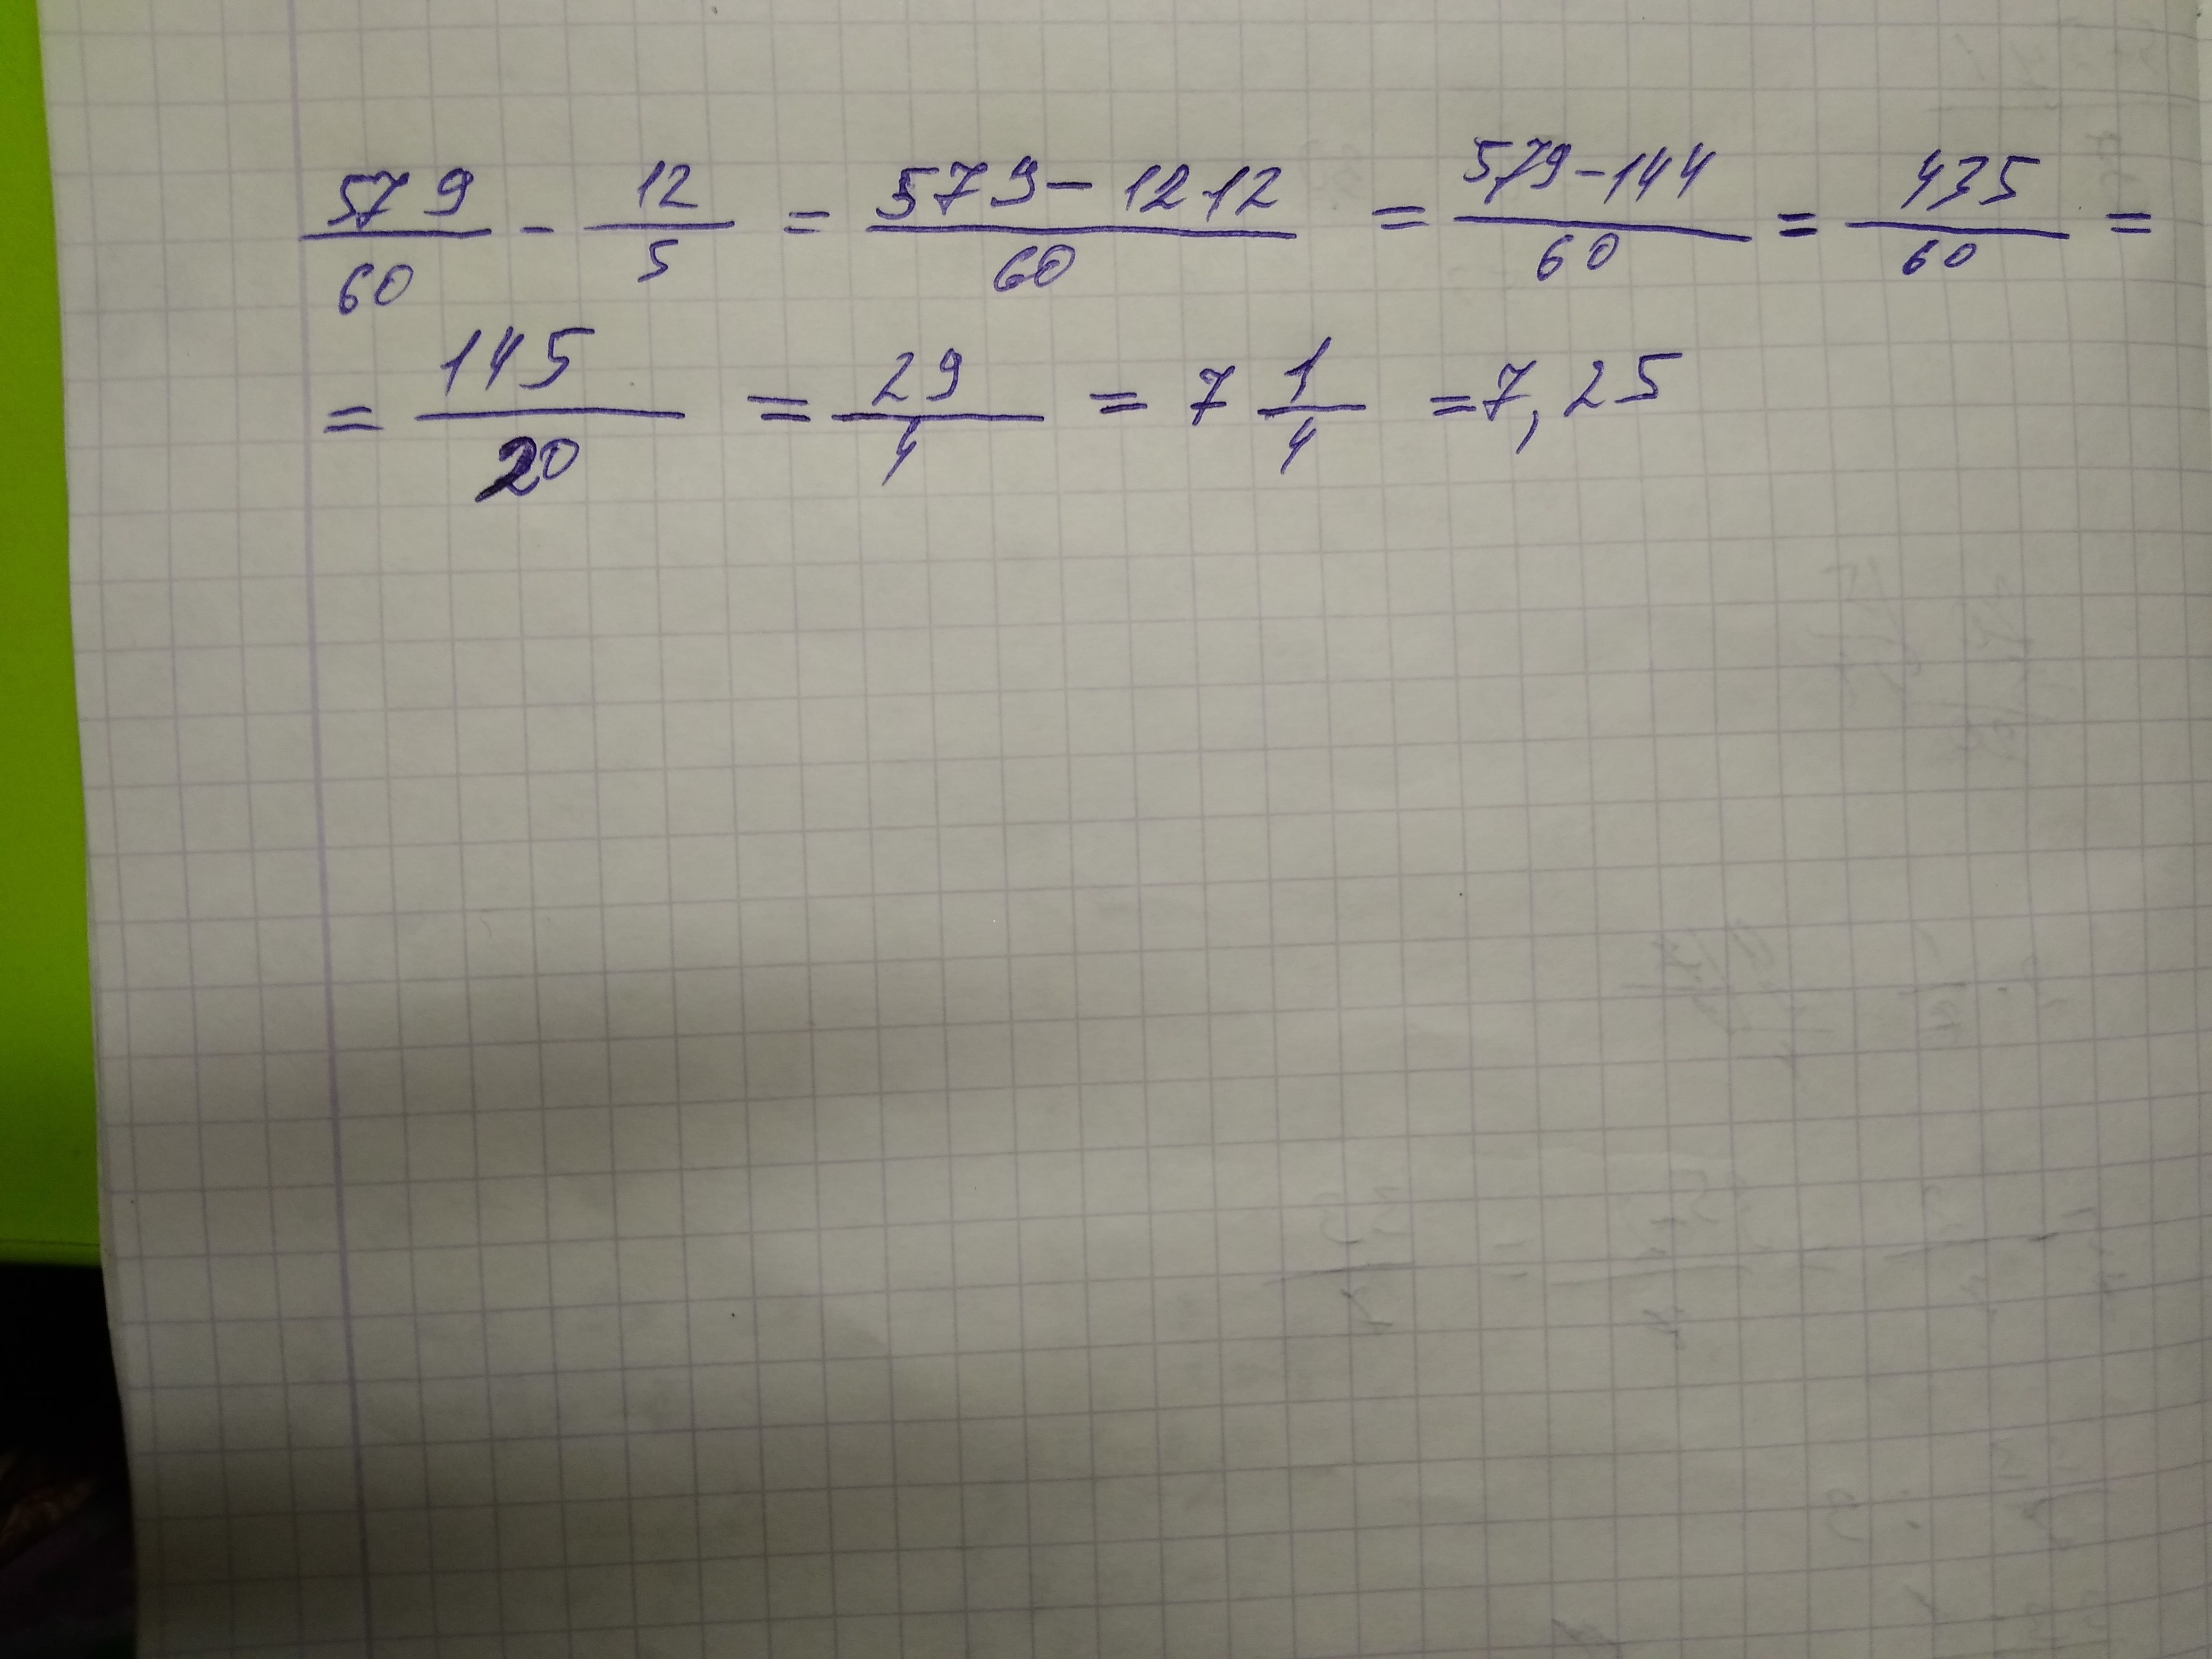 579/60 - 12/5 = 579-12 12/60 = 579-144/60 = 435/60 =
= 145/20 = 29/4 = 7 1/4 = 7,25